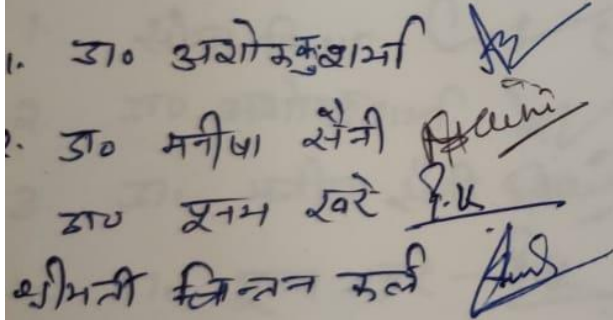 1. डा० अशोक कु. शर्मा
2. डा० मनीषा सैनी
डा० पूनम खरे P.K
श्रीमती चिन्तन वर्मा